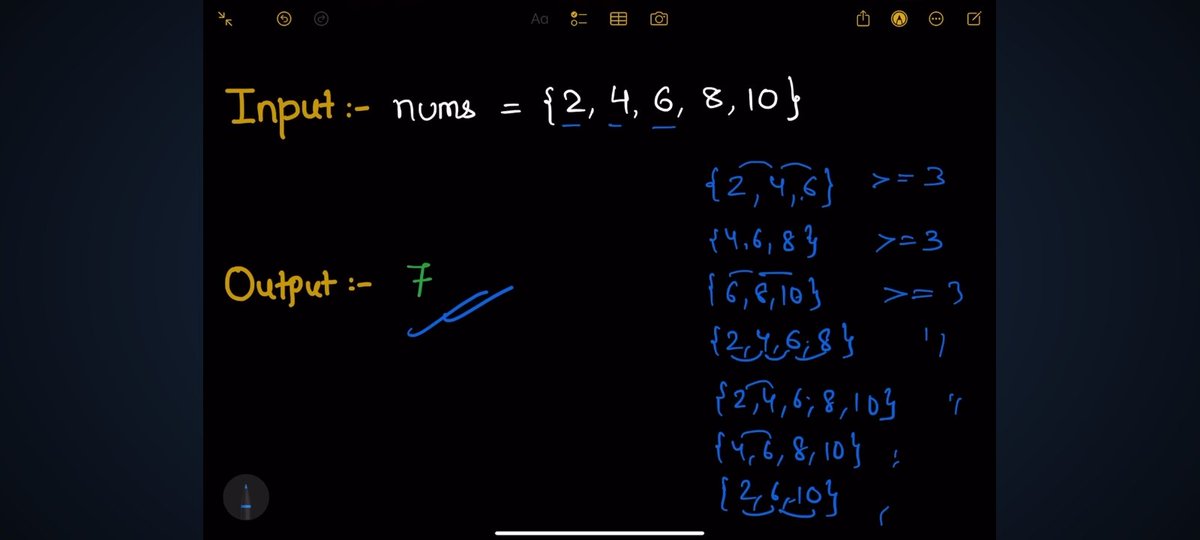 Aa
Input :- nums = {2, 4, 6, 8, 10}
{2, 4, 6} >= 3
{4, 6, 8} >= 3
Output :- 7
{6, 8, 10} >= 3
{2, 4, 6, 8} "
{2, 4, 6, 8, 10} "
{4, 6, 8, 10}
{2, 6, 10}